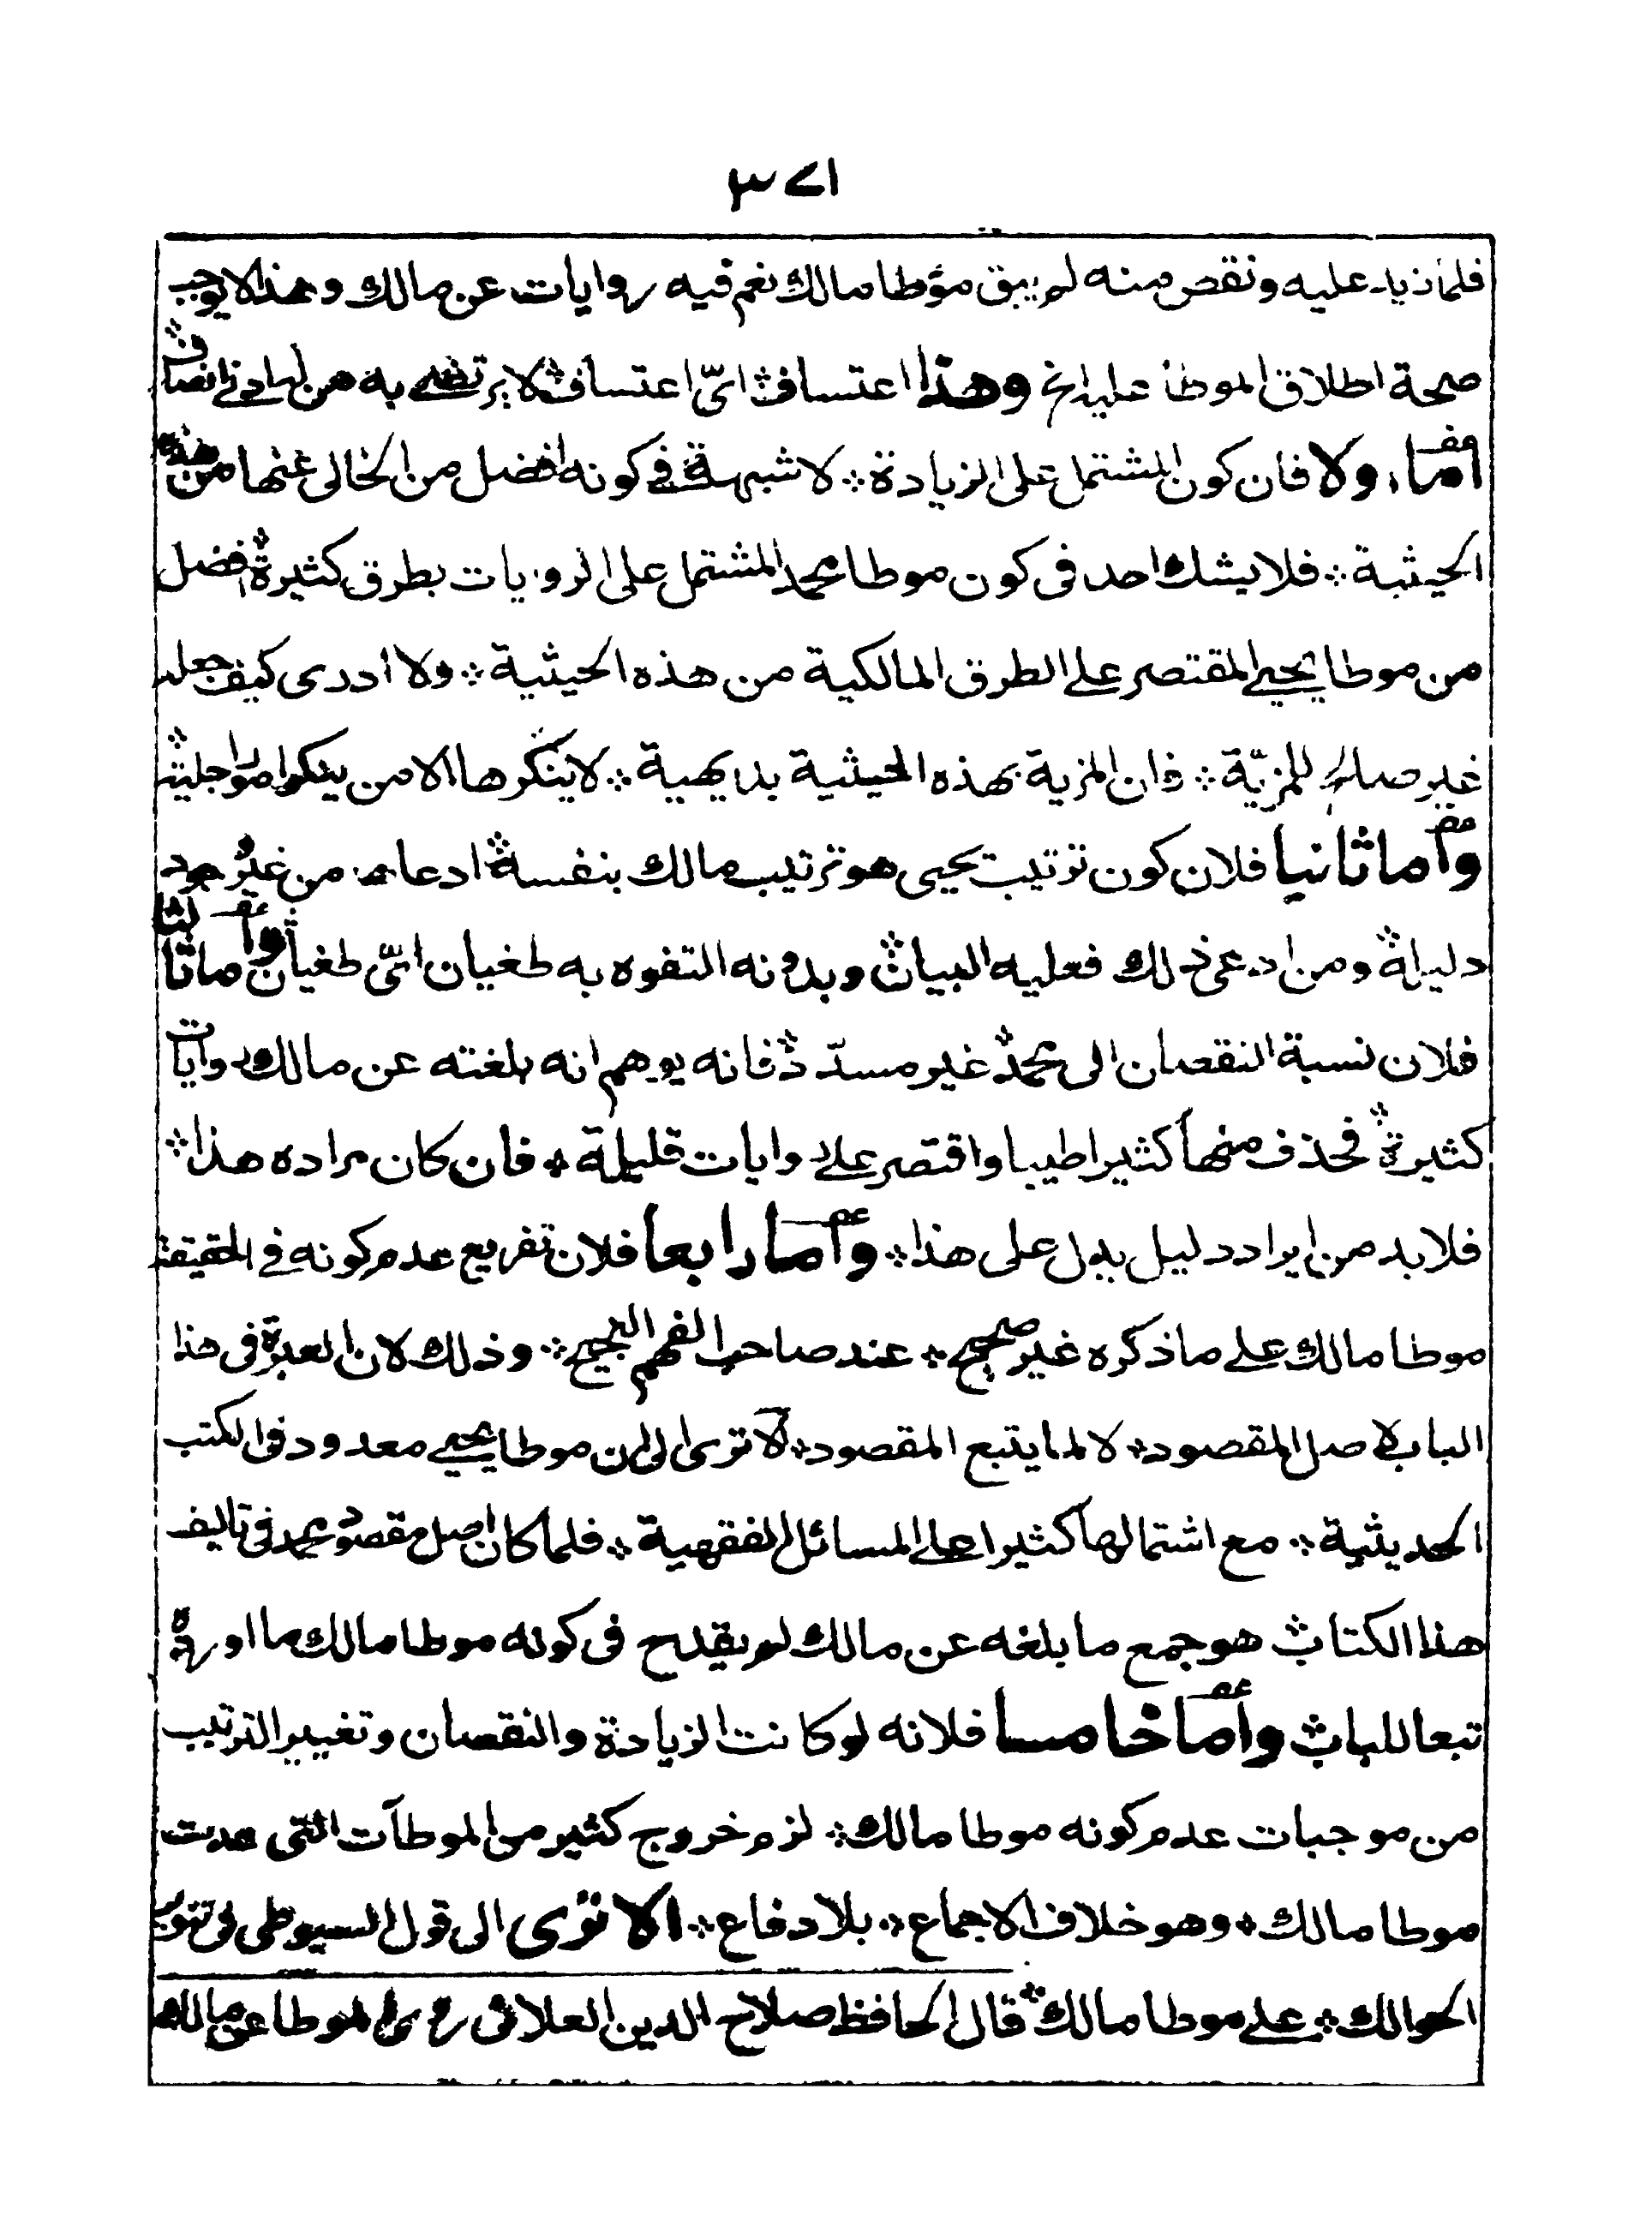 ٣٧١
فلما زيد عليه ونقص منه لم يبق مؤطا مالك نعم فيه روايات عن مالك وهذا لا يوجب
صحة اطلاق الموطأ عليه الخ وهذا اعتساف أيّ اعتساف لا يرتضى به من له ادنى انصاف
اما اولا فان كون المشتمل على الزيادة لا شبهة في كونه افضل من الخالى عنها من هذه
الحيثية فلا يشك احد فى كون موطا محمد المشتمل على الروايات بطرق كثيرة افضل
من موطا يحيى المقتصر على الطرق المالكية من هذه الحيثية ولا ادرى كيف جعله
غير صالح للمزيّة فان المزية بهذه الحيثية بديهية لا ينكرها الا من ينكر امورا جلية
وأما ثانيا فلان كون ترتيب يحيى هو ترتيب مالك بنفسه ادعاء من غير وجود
دليله ومن ادعى ذلك فعليه البيان وبدونه التفوه به طغيان أيّ طغيان وأما ثالثا
فلان نسبة النقصان الى محمد غير مسدد فانه يوهم انه بلغته عن مالك روايات
كثيرة فحذف منها كثيرا طيبا واقتصر على روايات قليلة فان كان مراده هذا
فلا بد من ايراد دليل يدل على هذا وأما رابعا فلان تفريع عدم كونه في الحقيقة
موطا مالك على ما ذكره غير صحيح عند صاحب الفهم النجيح وذلك لان العبرة فى هذا
الباب لاصل المقصود لا لما يتبع المقصود الا ترى الى ان موطا يحيى معدود فى الكتب
الحديثية مع اشتمالها كثيرا على المسائل الفقهية فلما كان اصل مقصود محمد فى تاليف
هذا الكتاب هو جمع ما بلغه عن مالك لم يقدح فى كونه موطا مالك ما اورده
تبعا للباب وأما خامسا فلانه لو كانت الزيادة والنقصان وتغيير الترتيب
من موجبات عدم كونه موطا مالك لزم خروج كثير من الموطآت التى عدت
موطا مالك وهو خلاف الاجماع بلا دفاع الا ترى الى قول السيوطى فى تنوير
الحوالك على موطا مالك قال الحافظ صلاح الدين العلائى روى الموطا عن مالك